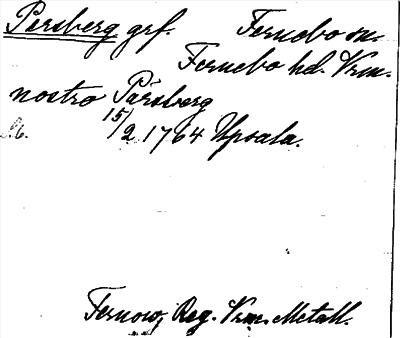 Persberg grf. Fernebo sn.
Fernebo hd. Vrm.
nostro Pärsberg
M. 15/2 1764 Upsala.
Fernow, Reg. Vrm. Metall.